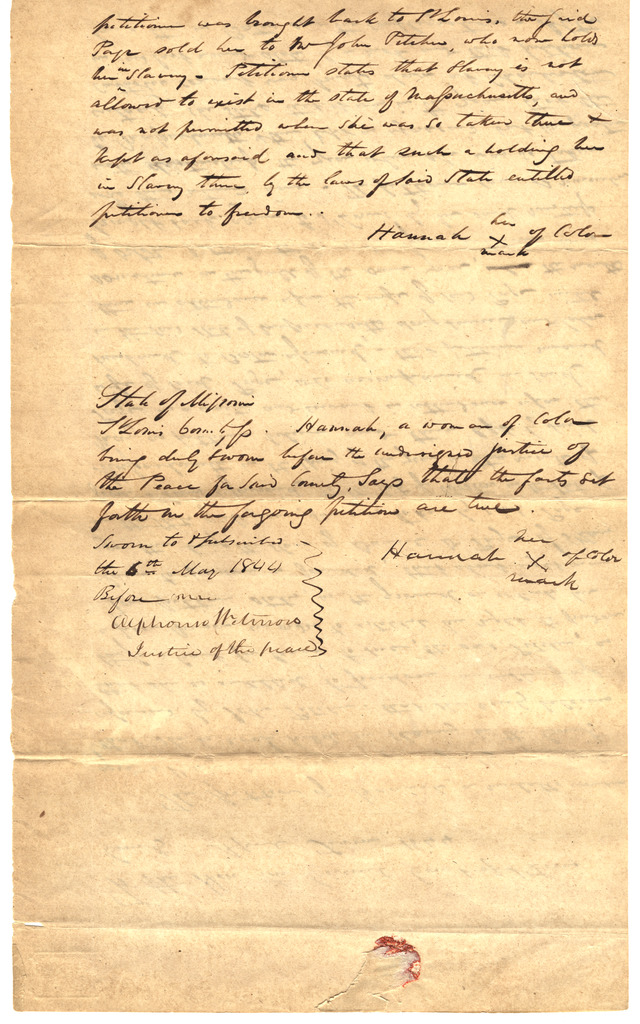 petitioner was brought back to St Louis, the said
Page sold her to Mr John Pitcher, who now holds
her in Slavery - Petitioner states that Slavery is not
allowed to exist in the state of Massachusetts, and
was not permitted when she was so taken there &
kept as aforesaid and that such a holding her
in Slavery there, by the laws of said State entitled
petitioner to freedom..
Hannah her X mark of Color
State of Missouri
St Louis County ss. Hannah, a woman of Color
being duly sworn before the undersigned justice of
the Peace for said County, Says that the facts set
forth in the forgoing petition are true.
Sworn to & subscribed
the 6th May 1844
Before me
Hannah her X mark of Color
Alphonso Wetmore
Justice of the peace